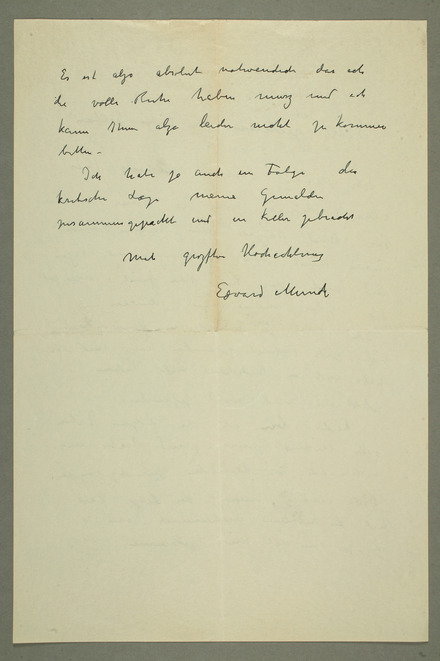 Es ist also absolut notwendich das ich
die volle Ruhe haben musz und ich
kann Ihnen also leider nicht zu kommen
bitten –
Ich habe ja auch in Folge der
kritischen Lage meine Gemelde
zusammengepackt und in Keller gebracht
Mit groszten Hochachtung
Edvard Munch